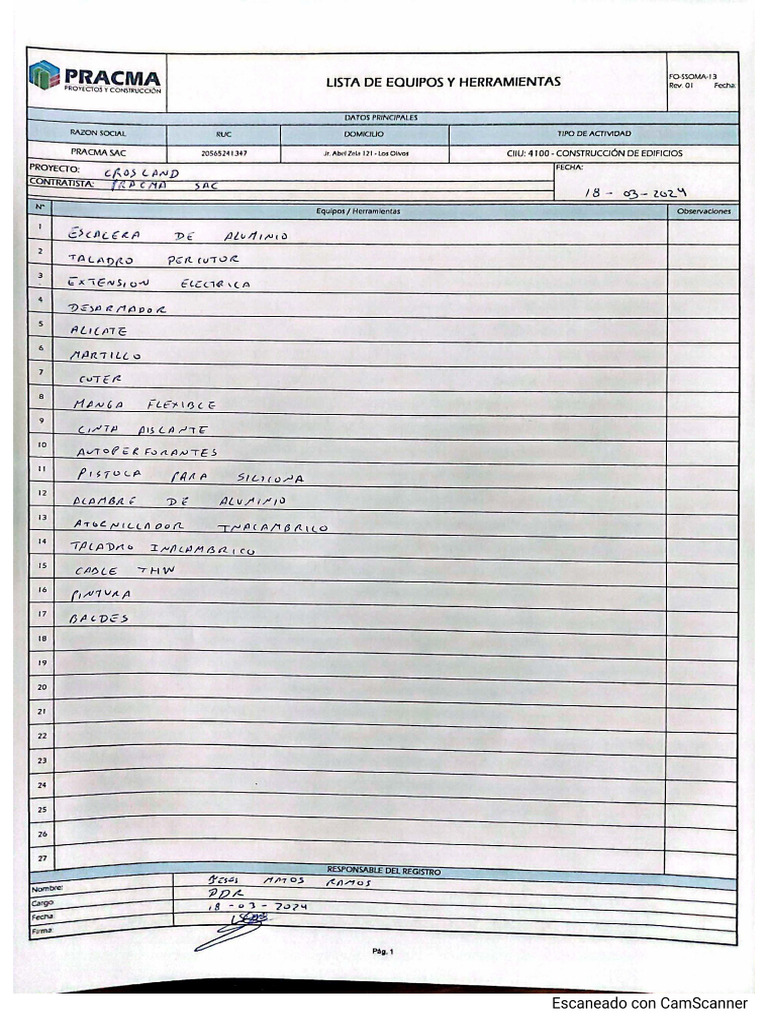 PRACMA
PROYECTOS Y CONSTRUCCIÓN
LISTA DE EQUIPOS Y HERRAMIENTAS
FO-SSOMA-13
Rev. 01 Fecha:
DATOS PRINCIPALES
RAZON SOCIAL RUC DOMICILIO TIPO DE ACTIVIDAD
PRACMA SAC 20565241347 Jr. Abel Zela 121 - Los Olivos CIIU: 4100 - CONSTRUCCIÓN DE EDIFICIOS
PROYECTO: CROSLAND FECHA:
CONTRATISTA: PRACMA SAC 18-03-2024
N° Equipos / Herramientas Observaciones
1 ESCALERA DE ALUMINIO
2 TALADRO PERCUTOR
3 EXTENSION ELECTRICA
4 DESARMADOR
5 ALICATE
6 MARTILLO
7 CUTER
8 MANGA FLEXIBLE
9 CINTA AISLANTE
10 AUTOPERFORANTES
11 PISTOLA PARA SILICONA
12 ALAMBRE DE ALUMINIO
13 ATORNILLADOR INALAMBRICO
14 TALADRO INALAMBRICO
15 CABLE THW
16 PINTURA
17 BALDES
18
19
20
21
22
23
24
25
26
27
RESPONSABLE DEL REGISTRO
Nombre: MATOS RAMOS
Cargo PDR
Fecha 18-03-2024
Firma
Pág. 1
Escaneado con CamScanner